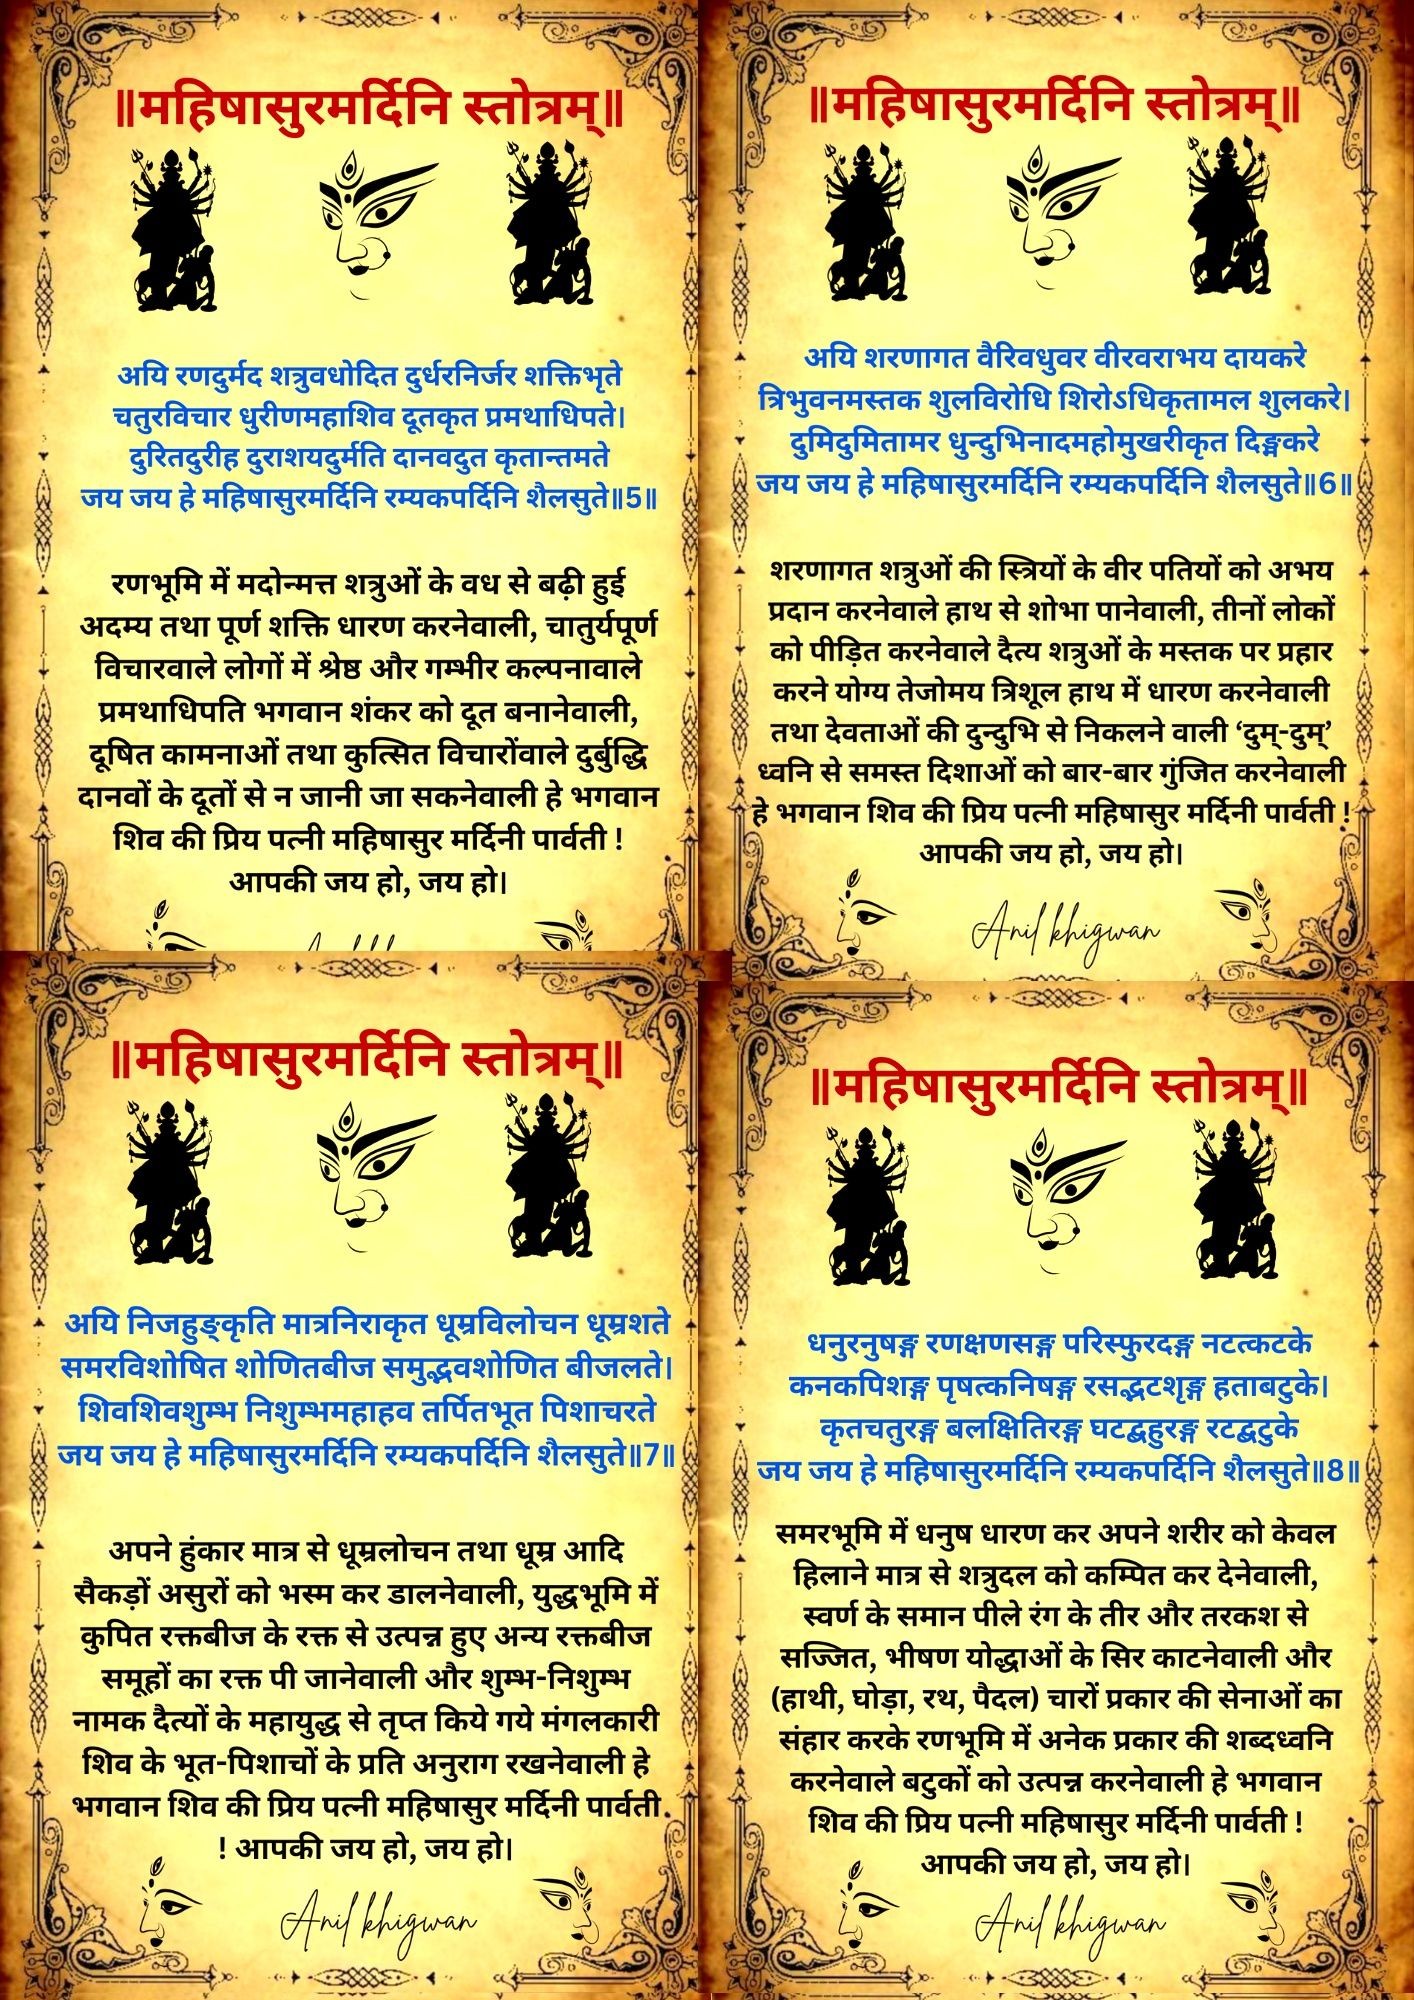 ॥महिषासुरमर्दिनि स्तोत्रम्॥
अयि रणदुर्मद शत्रुवधोदित दुर्धरनिर्जर शक्तिभृते
चतुरविचार धुरीणमहाशिव दूतकृत प्रमथाधिपते।
दुरितदुरीह दुराशयदुर्मति दानवदुत कृतान्तमते
जय जय हे महिषासुरमर्दिनि रम्यकपर्दिनि शैलसुते॥5॥
रणभूमि में मदोन्मत्त शत्रुओं के वध से बढ़ी हुई
अदम्य तथा पूर्ण शक्ति धारण करनेवाली, चातुर्यपूर्ण
विचारवाले लोगों में श्रेष्ठ और गम्भीर कल्पनावाले
प्रमथाधिपति भगवान शंकर को दूत बनानेवाली,
दूषित कामनाओं तथा कुत्सित विचारोंवाले दुर्बुद्धि
दानवों के दूतों से न जानी जा सकनेवाली हे भगवान
शिव की प्रिय पत्नी महिषासुर मर्दिनी पार्वती !
आपकी जय हो, जय हो।
॥महिषासुरमर्दिनि स्तोत्रम्॥
अयि शरणागत वैरिवधुवर वीरवराभय दायकरे
त्रिभुवनमस्तक शुलविरोधि शिरोऽधिकृतामल शुलकरे।
दुमिदुमितामर धुन्दुभिनादमहोमुखरीकृत दिङ्मकरे
जय जय हे महिषासुरमर्दिनि रम्यकपर्दिनि शैलसुते॥6॥
शरणागत शत्रुओं की स्त्रियों के वीर पतियों को अभय
प्रदान करनेवाले हाथ से शोभा पानेवाली, तीनों लोकों
को पीड़ित करनेवाले दैत्य शत्रुओं के मस्तक पर प्रहार
करने योग्य तेजोमय त्रिशूल हाथ में धारण करनेवाली
तथा देवताओं की दुन्दुभि से निकलने वाली ‘दुम्-दुम्’
ध्वनि से समस्त दिशाओं को बार-बार गुंजित करनेवाली
हे भगवान शिव की प्रिय पत्नी महिषासुर मर्दिनी पार्वती !
आपकी जय हो, जय हो।
Anil khigwan
॥महिषासुरमर्दिनि स्तोत्रम्॥
अयि निजहुङ्कृति मात्रनिराकृत धूम्रविलोचन धूम्रशते
समरविशोषित शोणितबीज समुद्भवशोणित बीजलते।
शिवशिवशुम्भ निशुम्भमहाहव तर्पितभूत पिशाचरते
जय जय हे महिषासुरमर्दिनि रम्यकपर्दिनि शैलसुते॥7॥
अपने हुंकार मात्र से धूम्रलोचन तथा धूम्र आदि
सैकड़ों असुरों को भस्म कर डालनेवाली, युद्धभूमि में
कुपित रक्तबीज के रक्त से उत्पन्न हुए अन्य रक्तबीज
समूहों का रक्त पी जानेवाली और शुम्भ-निशुम्भ
नामक दैत्यों के महायुद्ध से तृप्त किये गये मंगलकारी
शिव के भूत-पिशाचों के प्रति अनुराग रखनेवाली हे
भगवान शिव की प्रिय पत्नी महिषासुर मर्दिनी पार्वती
! आपकी जय हो, जय हो।
Anil khigwan
॥महिषासुरमर्दिनि स्तोत्रम्॥
धनुरनुषङ्ग रणक्षणसङ्ग परिस्फुरदङ्ग नटत्कटके
कनकपिशङ्ग पृषत्कनिषङ्ग रसद्भटशृङ्ग हताबटुके।
कृतचतुरङ्ग बलक्षितिरङ्ग घटद्बहुरङ्ग रटद्बटुके
जय जय हे महिषासुरमर्दिनि रम्यकपर्दिनि शैलसुते॥8॥
समरभूमि में धनुष धारण कर अपने शरीर को केवल
हिलाने मात्र से शत्रुदल को कम्पित कर देनेवाली,
स्वर्ण के समान पीले रंग के तीर और तरकश से
सज्जित, भीषण योद्धाओं के सिर काटनेवाली और
(हाथी, घोड़ा, रथ, पैदल) चारों प्रकार की सेनाओं का
संहार करके रणभूमि में अनेक प्रकार की शब्दध्वनि
करनेवाले बटुकों को उत्पन्न करनेवाली हे भगवान
शिव की प्रिय पत्नी महिषासुर मर्दिनी पार्वती !
आपकी जय हो, जय हो।
Anil khigwan